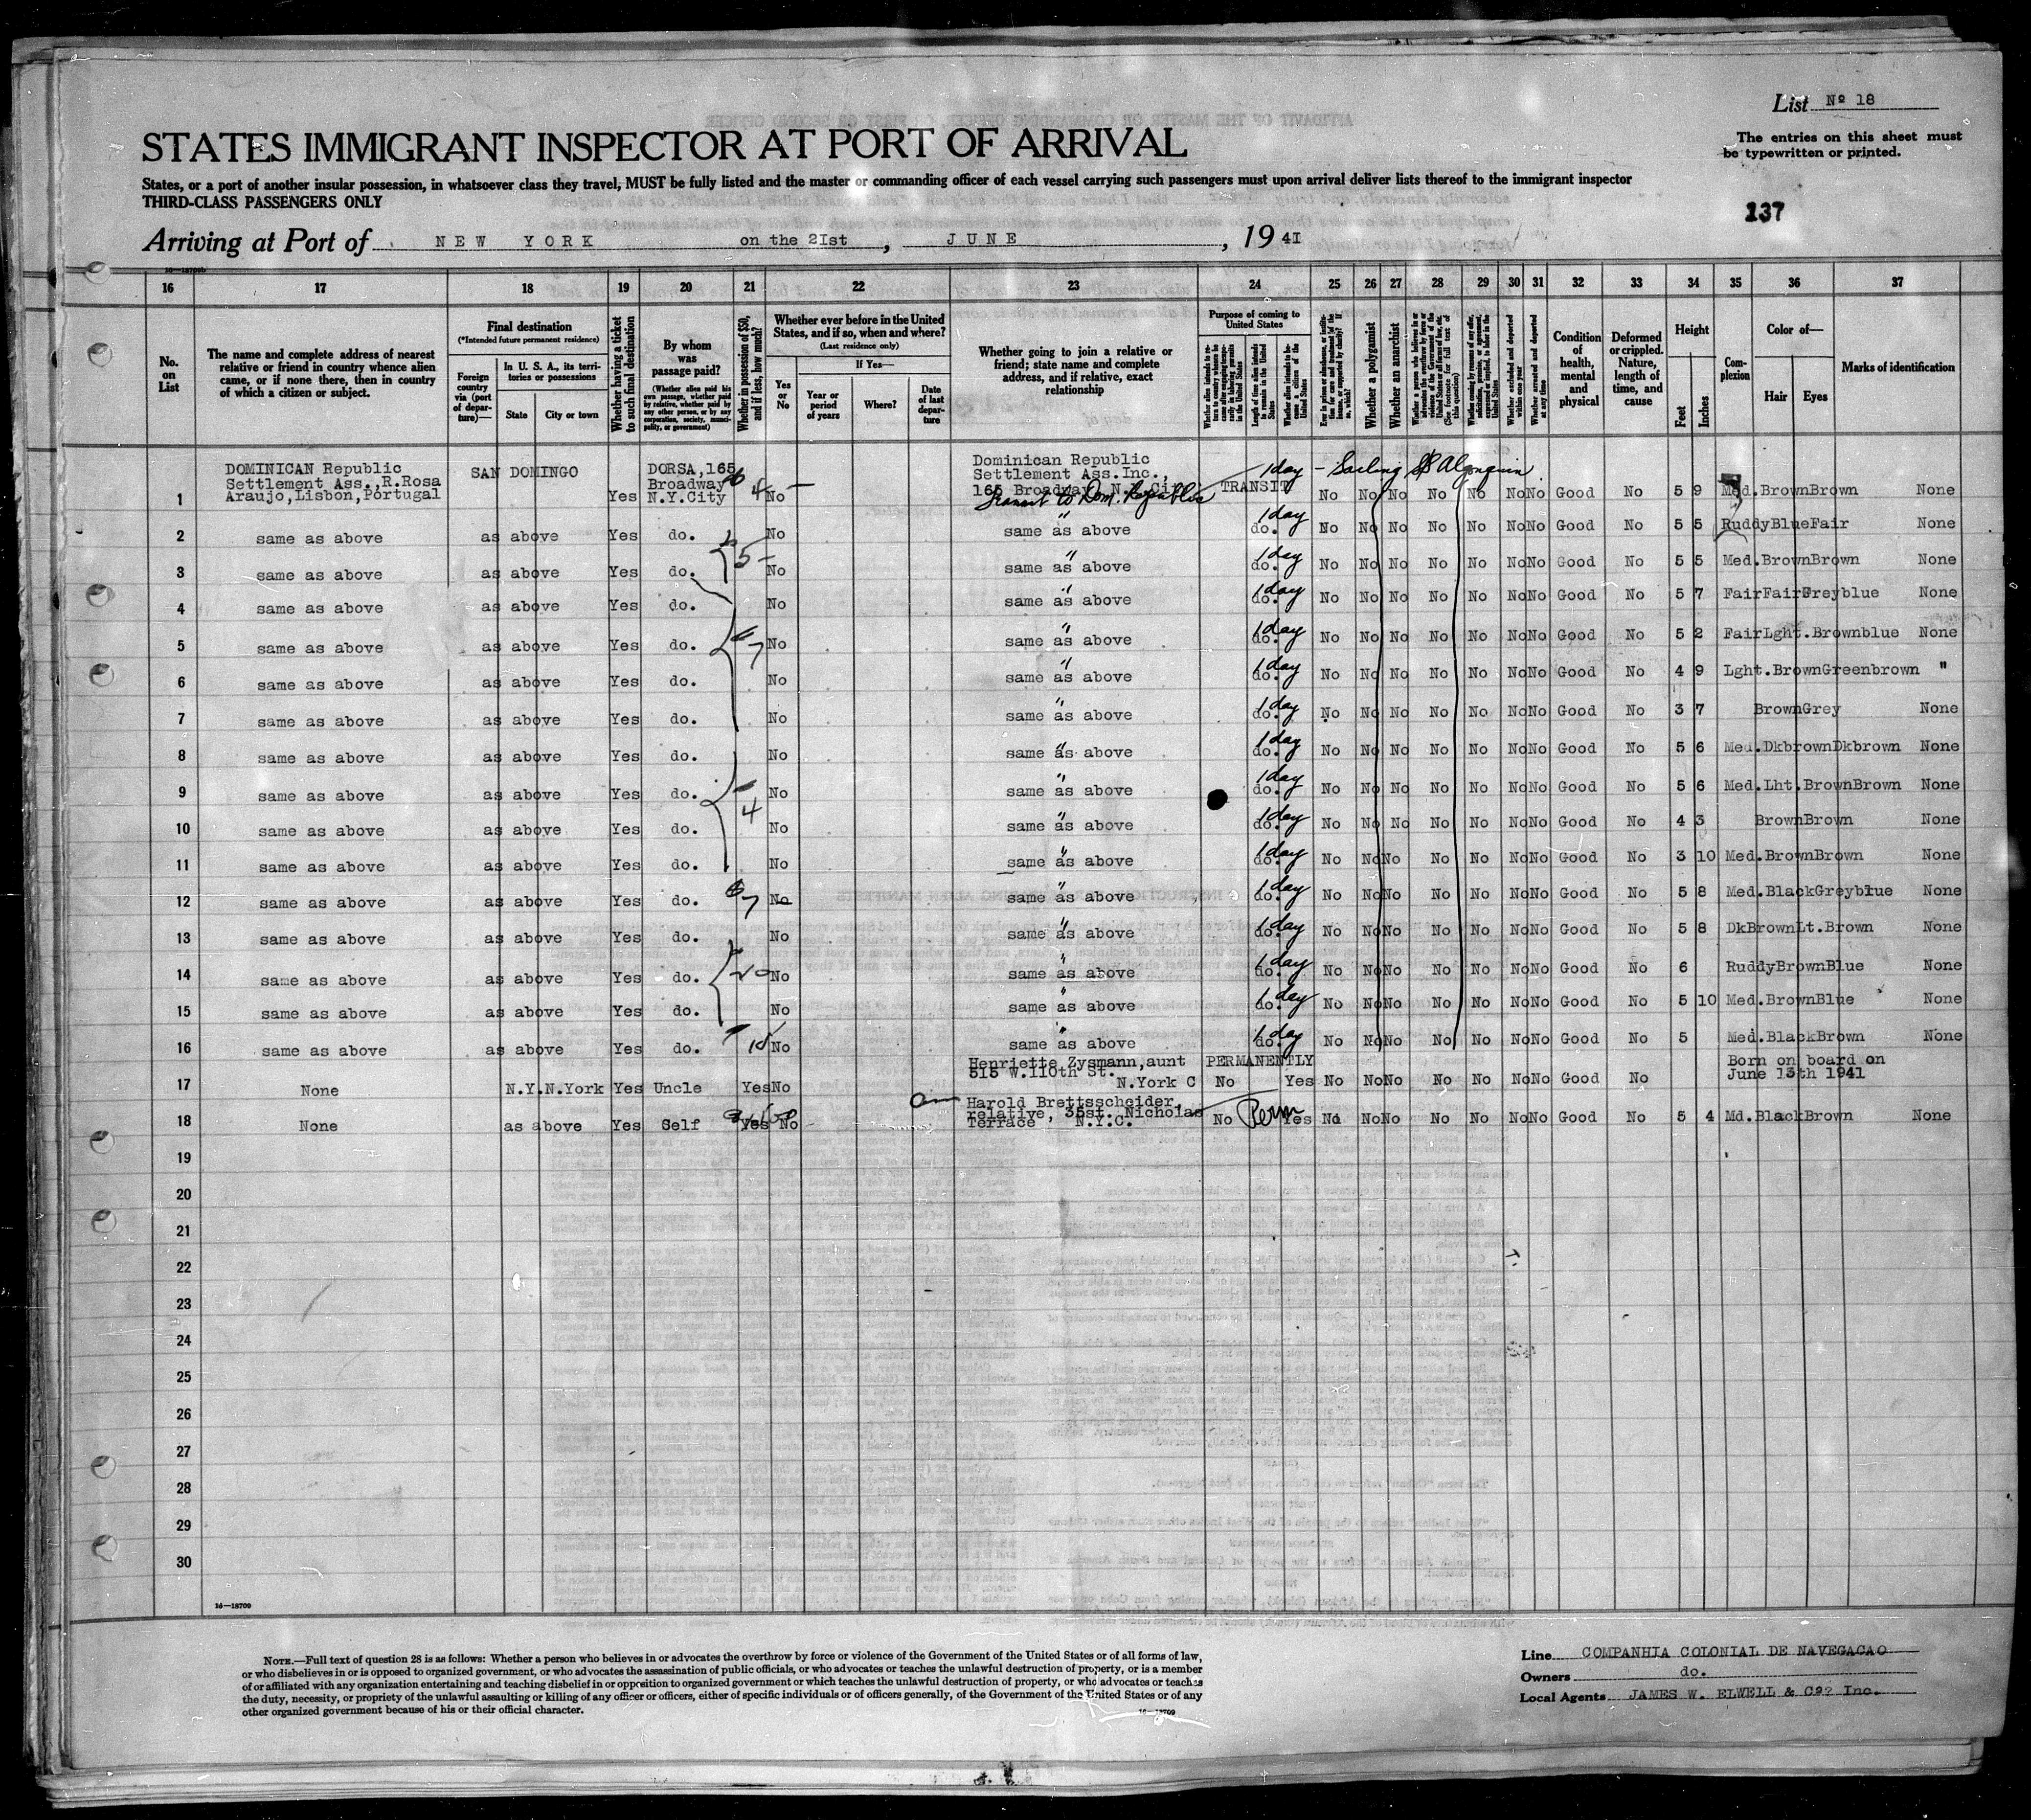 List Nº 18
STATES IMMIGRANT INSPECTOR AT PORT OF ARRIVAL
The entries on this sheet must
be typewritten or printed.
States, or a port of another insular possession, in whatsoever class they travel, MUST be fully listed and the master or commanding officer of each vessel carrying such passengers must upon arrival deliver lists thereof to the immigrant inspector
THIRD-CLASS PASSENGERS ONLY
137
Arriving at Port of NEW YORK on the 2Ist, JUNE, 19 4I
16 17 18 19 20 21 22 23 24 25 26 27 28 29 30 31 32 33 34 35 36 37
No. on List
The name and complete address of nearest
relative or friend in country whence alien
came, or if none there, then in country
of which a citizen or subject.
Final destination
(*Intended future permanent residence)
Foreign country via (port of departure)—
In U. S. A., its territories or possessions
State City or town
Whether having a ticket to such final destination
By whom was passage paid?
(Whether alien paid his own passage, whether paid by relative, whether paid by any other person, or by any corporation, society, municipality, or government)
Whether in possession of $50, and if less, how much?
Whether ever before in the United States, and if so, when and where?
(Last residence only)
Yes or No
If Yes—
Year or period of years
Where?
Date of last departure
Whether going to join a relative or
friend; state name and complete
address, and if relative, exact
relationship
Purpose of coming to United States
Length of time alien intends to remain in the United States
Whether alien intends to become a citizen of the United States
Whether a polygamist
Whether an anarchist
Whether excluded and deported within one year
Whether arrested and deported at any time
Condition of health, mental and physical
Deformed or crippled. Nature, length of time, and cause
Height
Feet Inches
Complexion
Color of—
Hair Eyes
Marks of identification
1 DOMINICAN Republic Settlement Ass.,R.Rosa Araujo,Lisbon,Portugal SAN DOMINGO Yes DORSA,165 Broadway N.Y.City 4 No Dominican Republic Settlement Ass.Inc., 165 Broadway, N.Y.City Transit to Dom. Republic TRANSIT 1 day - Sailing SS Algonquin No No No No No No No Good No 5 9 Med. Brown Brown None
2 same as above as above Yes do. No same as above do. 1 day No No No No No No No Good No 5 5 Ruddy Blue Fair None
3 same as above as above Yes do. 5 No same as above do. 1 day No No No No No No No Good No 5 5 Med. Brown Brown None
4 same as above as above Yes do. No same as above do. 1 day No No No No No No No Good No 5 7 Fair Fair Greyblue None
5 same as above as above Yes do. 7 No same as above do. 1 day No No No No No No No Good No 5 2 Fair Lght.Brown blue None
6 same as above as above Yes do. No same as above do. 1 day No No No No No No No Good No 4 9 Lght.Brown Greenbrown "
7 same as above as above Yes do. No same as above do. 1 day No No No No No No No Good No 3 7 Brown Grey None
8 same as above as above Yes do. No same as above do. 1 day No No No No No No No Good No 5 6 Med. Dkbrown Dkbrown None
9 same as above as above Yes do. 4 No same as above do. 1 day No No No No No No No Good No 5 6 Med. Lht.Brown Brown None
10 same as above as above Yes do. No same as above do. 1 day No No No No No No No Good No 4 3 Brown Brown None
11 same as above as above Yes do. No same as above do. 1 day No No No No No No No Good No 3 10 Med. Brown Brown None
12 same as above as above Yes do. 7 No same as above do. 1 day No No No No No No No Good No 5 8 Med. Black Greyblue None
13 same as above as above Yes do. No same as above do. 1 day No No No No No No No Good No 5 8 DkBrown Lt.Brown None
14 same as above as above Yes do. 20 No same as above do. 1 day No No No No No No No Good No 6 Ruddy Brown Blue None
15 same as above as above Yes do. No same as above do. 1 day No No No No No No No Good No 5 10 Med. Brown Blue None
16 same as above as above Yes do. No same as above do. 1 day No No No No No No No Good No 5 Med. Black Brown None
17 None N.Y. N.York Yes Uncle Yes No Henriette Zysmann,aunt 515 W.110th St. N.York C PERMANENTLY No Yes No No No No No No No Good No Born on board on June 13th 1941
18 None as above Yes Self Yes No Harold Brettsscheider, relative, 35st. Nicholas Terrace N.Y.C. No Perm Yes No No No No No No No Good No 5 4 Md. Black Brown None
19
20
21
22
23
24
25
26
27
28
29
30
16—18709
NOTE.—Full text of question 28 is as follows: Whether a person who believes in or advocates the overthrow by force or violence of the Government of the United States or of all forms of law,
or who disbelieves in or is opposed to organized government, or who advocates the assassination of public officials, or who advocates or teaches the unlawful destruction of property, or is a member
of or affiliated with any organization entertaining and teaching disbelief in or opposition to organized government or which teaches the unlawful destruction of property, or who advocates or teaches
the duty, necessity, or propriety of the unlawful assaulting or killing of any officer or officers, either of specific individuals or of officers generally, of the Government of the United States or of any
other organized government because of his or their official character.
16—18709
Line COMPANHIA COLONIAL DE NAVEGACAO
Owners do.
Local Agents JAMES W. ELWELL & Cº? Inc.